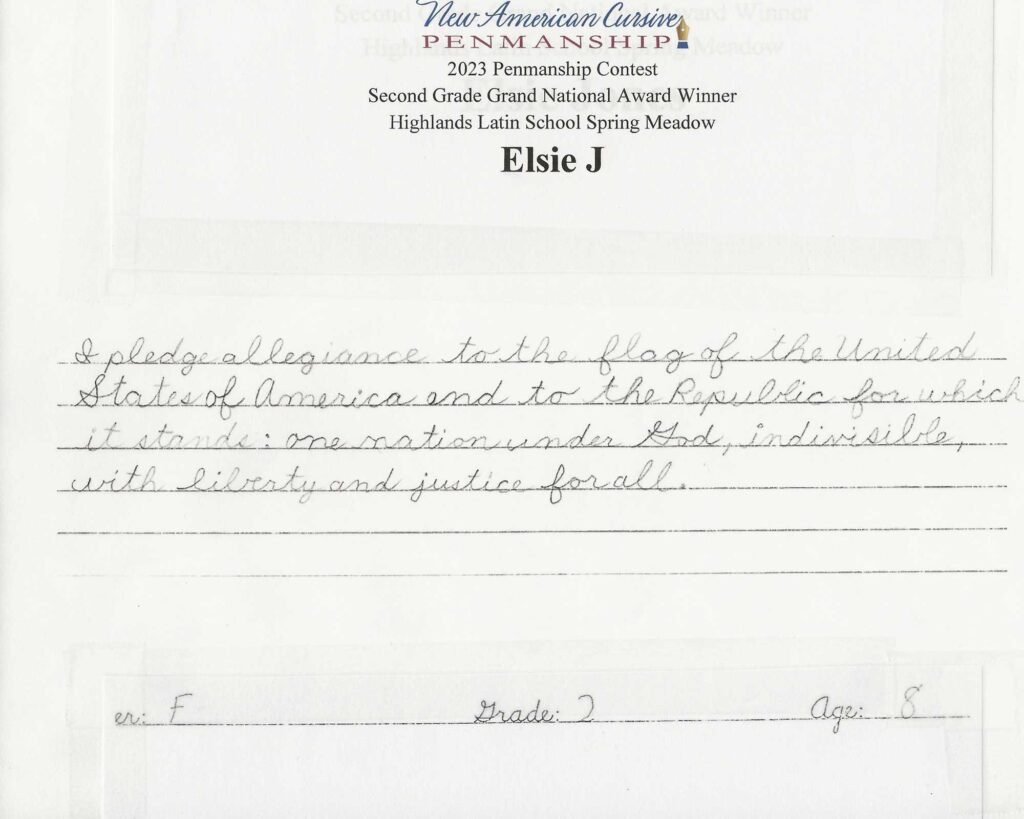 New American Cursive
PENMANSHIP
2023 Penmanship Contest
Second Grade Grand National Award Winner
Highlands Latin School Spring Meadow
Elsie J
I pledge allegiance to the flag of the United
States of America and to the Republic for which
it stands: one nation under God, indivisible,
with liberty and justice for all.
er: F Grade: 2 Age: 8